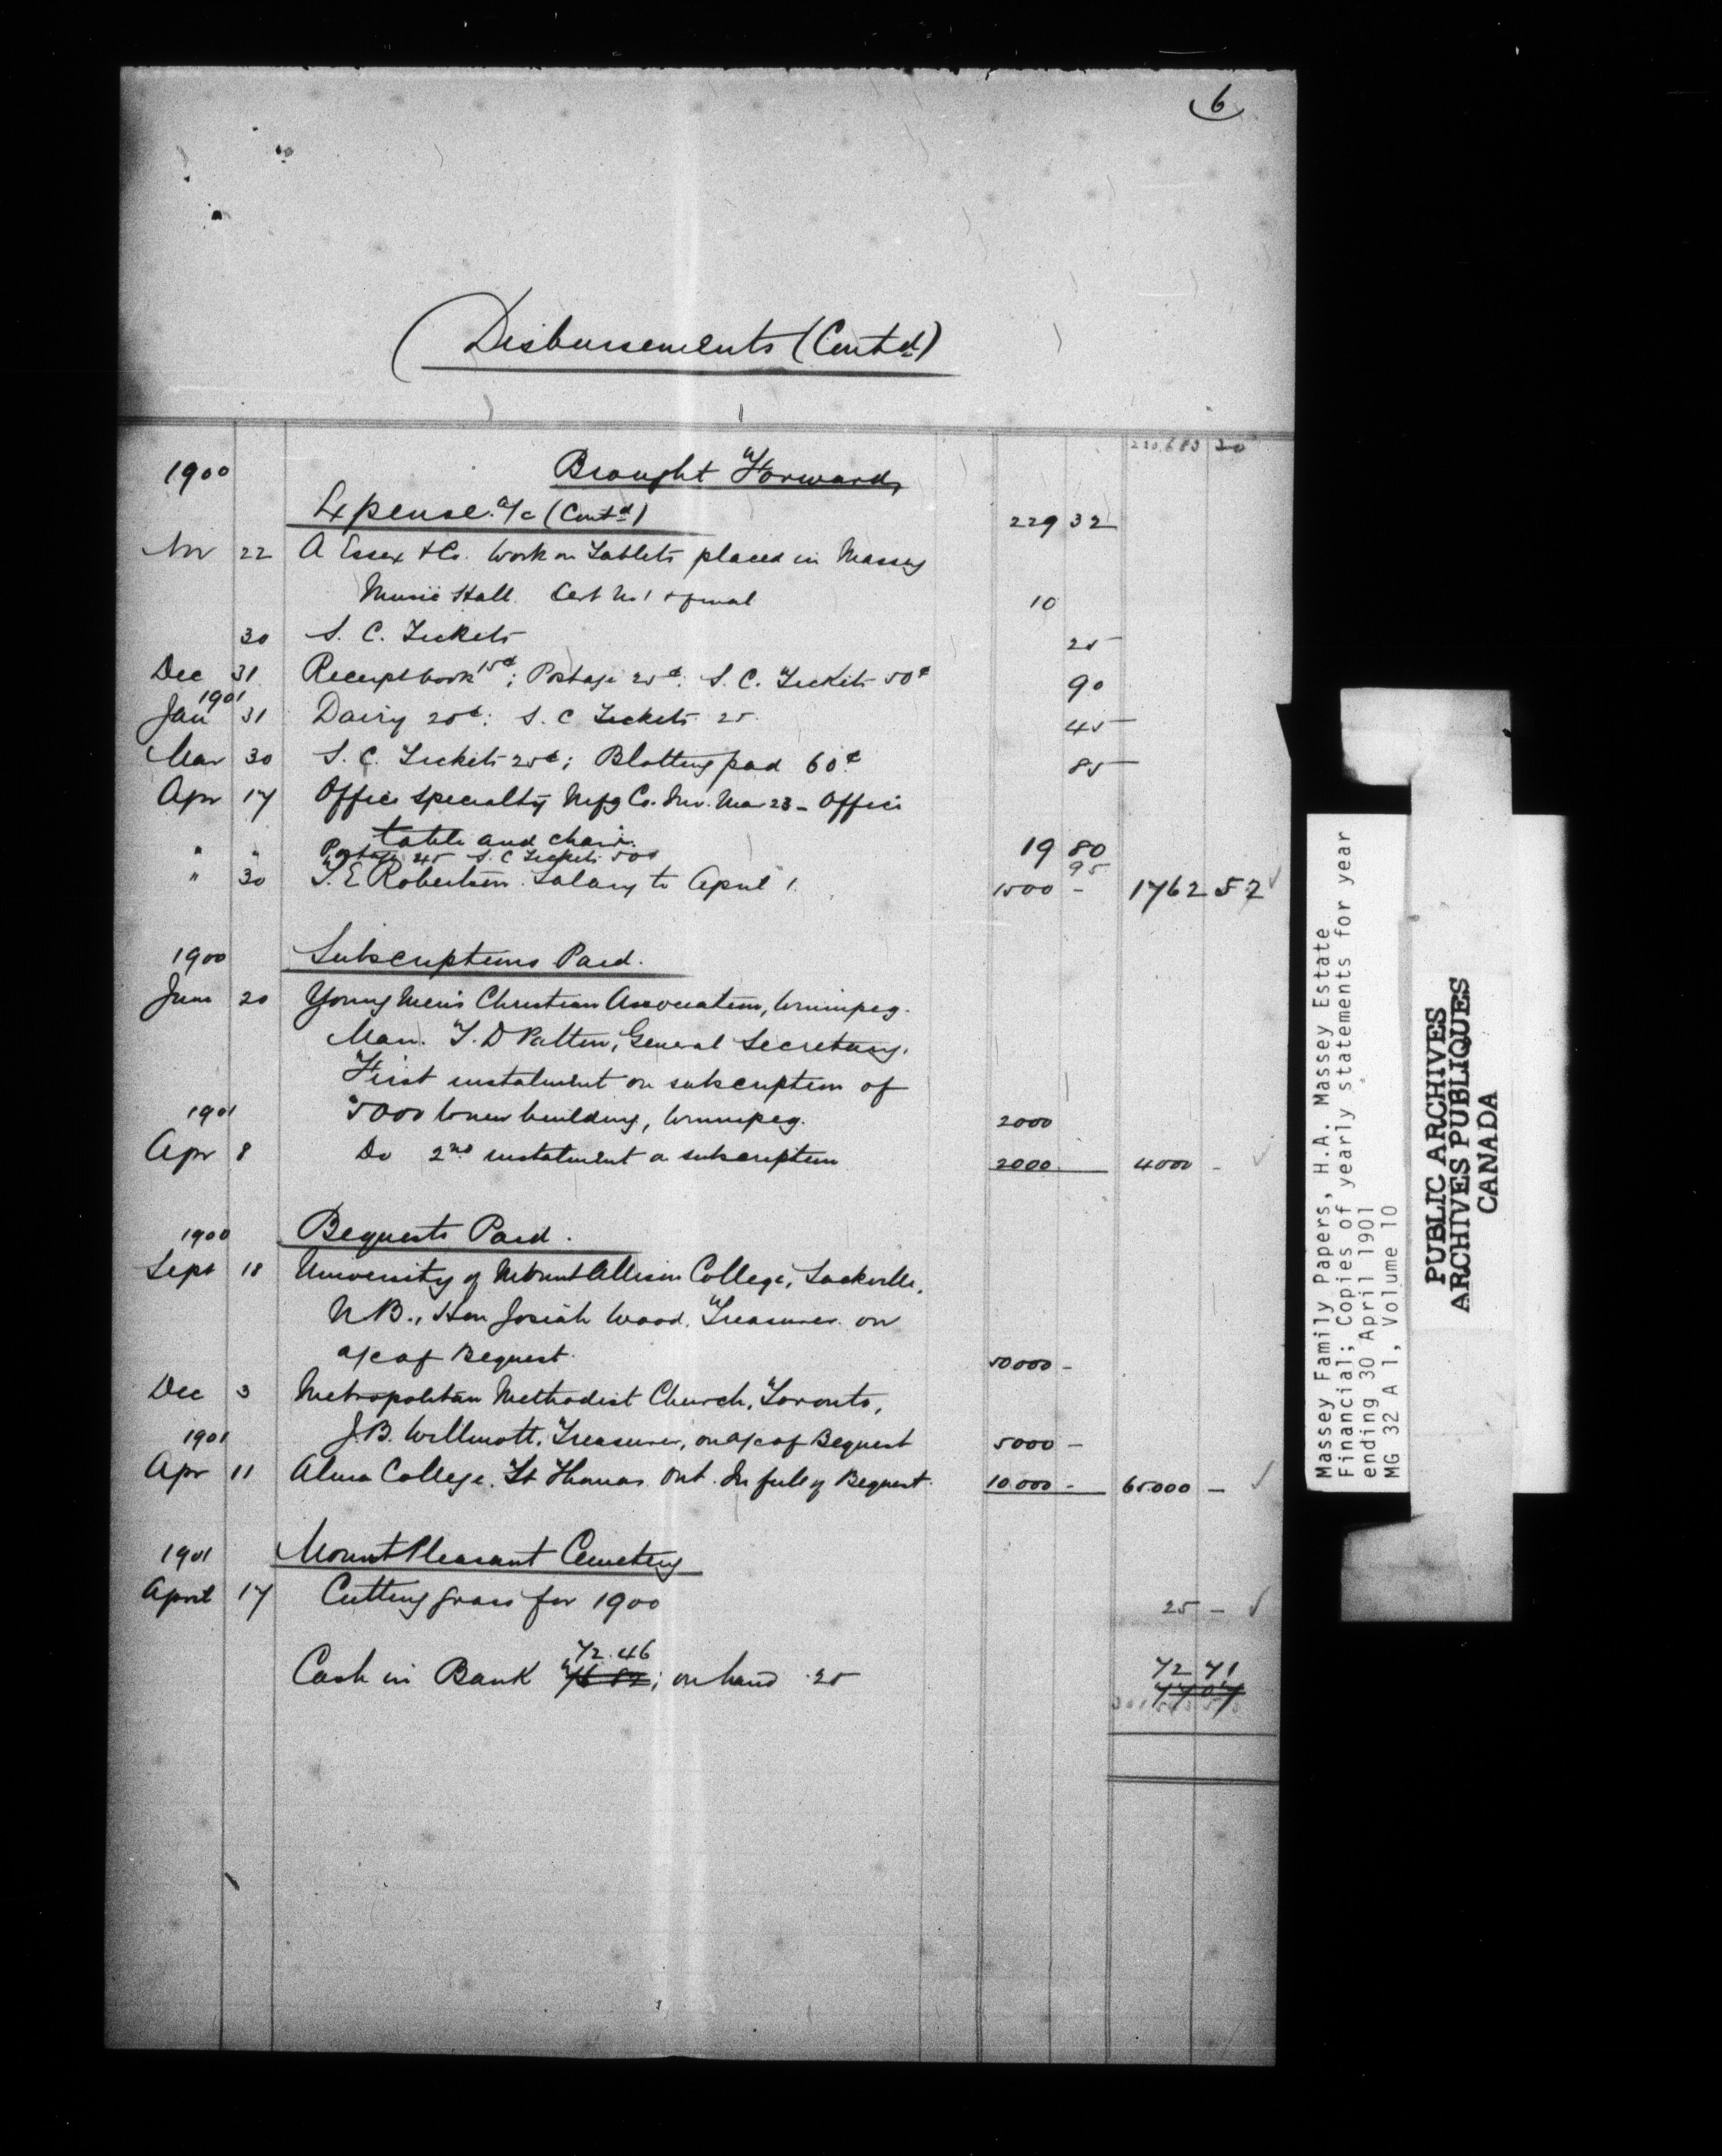 6
Disbursements (Contd)
230,683 20
1900 Brought Forward,
Expense a/c (Contd) 229 32
Nov 22 A Essex & Co. Work on Tablets placed in Massey
Music Hall. Cert No 1 & final 10
30 S. C. Tickets 25
Dec 31 Receipt book 15¢; Postage 25¢: S. C. Tickets 50¢ 90
1901
Jan 31 Dairy 20¢: S. C Tickets 25. 45
Mar 30 S. C. Tickets 25¢; Blotting pad 60¢ 85
Apr 17 Office Specialty Mfg Co. Inv. Mar 23 - Office
table and chair. 19 80
" " Postage 45 S. C Tickets 50¢ 95
" 30 T. E Robertson. Salary to April 1. 1500 - 1762 52
1900 Subscriptions Paid.
June 20 Young Men's Christian Association, Winnipeg.
Man. T. D Patton, General Secretary.
First instalment on subscription of
1901 5000 to new building, Winnipeg. 2000
Apr 8 Do 2nd instalment on subscription 2000 4000 -
1900 Bequests Paid.
Sept 18 University of Mount Allison College, Sackville,
N B., Hon Josiah Wood, Treasurer on
a/c of Bequest. 50000 -
Dec 3 Metropolitan Methodist Church, Toronto,
1901 J. B. Willmott, Treasurer, on a/c of Bequest 5000 -
Apr 11 Alma College. St Thomas Ont. In full of Bequest. 10.000 - 65.000 -
1901 Mount Pleasant Cemetery
April 17 Cutting grass for 1900 25 -
72.46
Cash in Bank 76 82; on hand .25 72 71
77 07
Massey Family Papers, H.A. Massey Estate
Financial; Copies of yearly statements for year
ending 30 April 1901
MG 32 A 1, Volume 10
PUBLIC ARCHIVES
ARCHIVES PUBLIQUES
CANADA